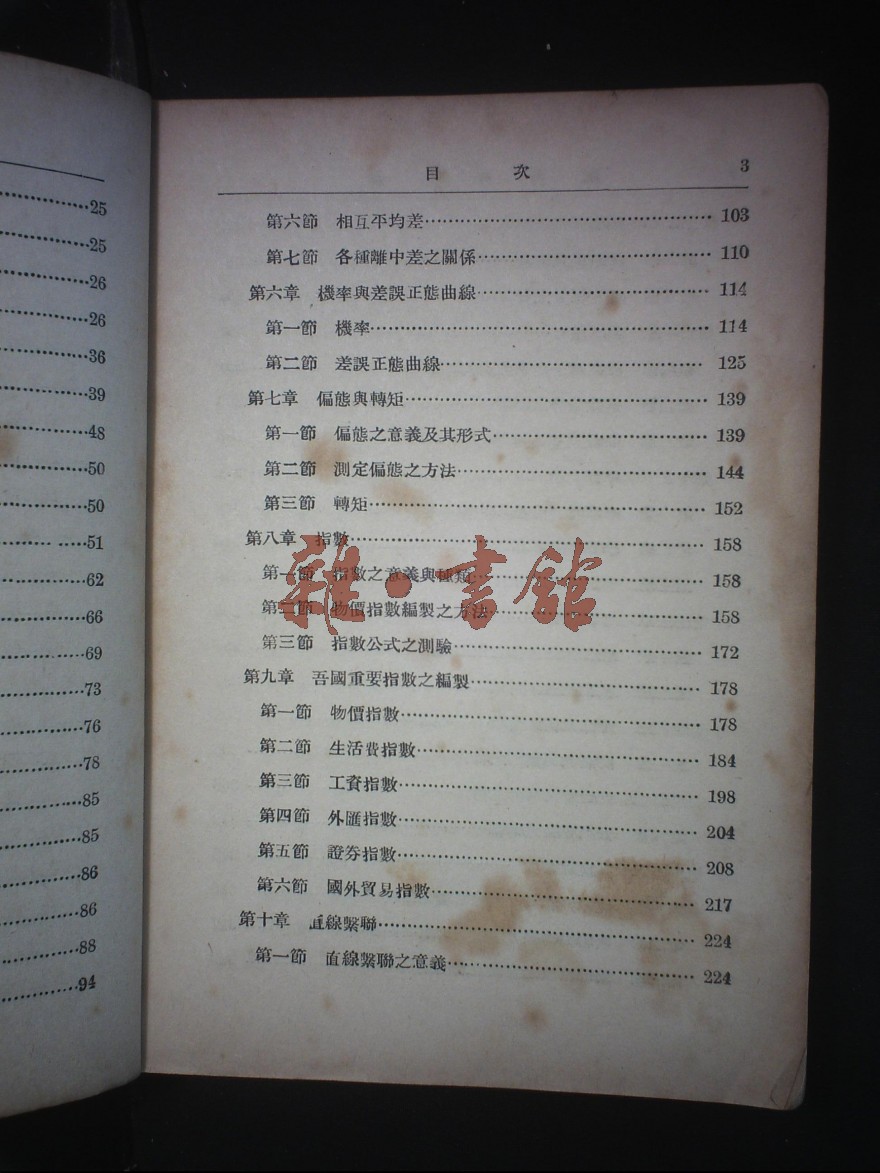 25
25
26
26
36
39
48
50
50
51
62
66
69
73
76
78
85
85
86
86
88
94
目 次 3
第六節 相互平均差 103
第七節 各種離中差之關係 110
第六章 機率與差誤正態曲線 114
第一節 機率 114
第二節 差誤正態曲線 125
第七章 偏態與轉矩 139
第一節 偏態之意義及其形式 139
第二節 測定偏態之方法 144
第三節 轉矩 152
第八章 指數 158
第一節 指數之意義與種類 158
第二節 物價指數編製之方法 158
第三節 指數公式之測驗 172
第九章 吾國重要指數之編製 178
第一節 物價指數 178
第二節 生活費指數 184
第三節 工資指數 198
第四節 外匯指數 204
第五節 證券指數 208
第六節 國外貿易指數 217
第十章 直線繫聯 224
第一節 直線繫聯之意義 224
雜·書館